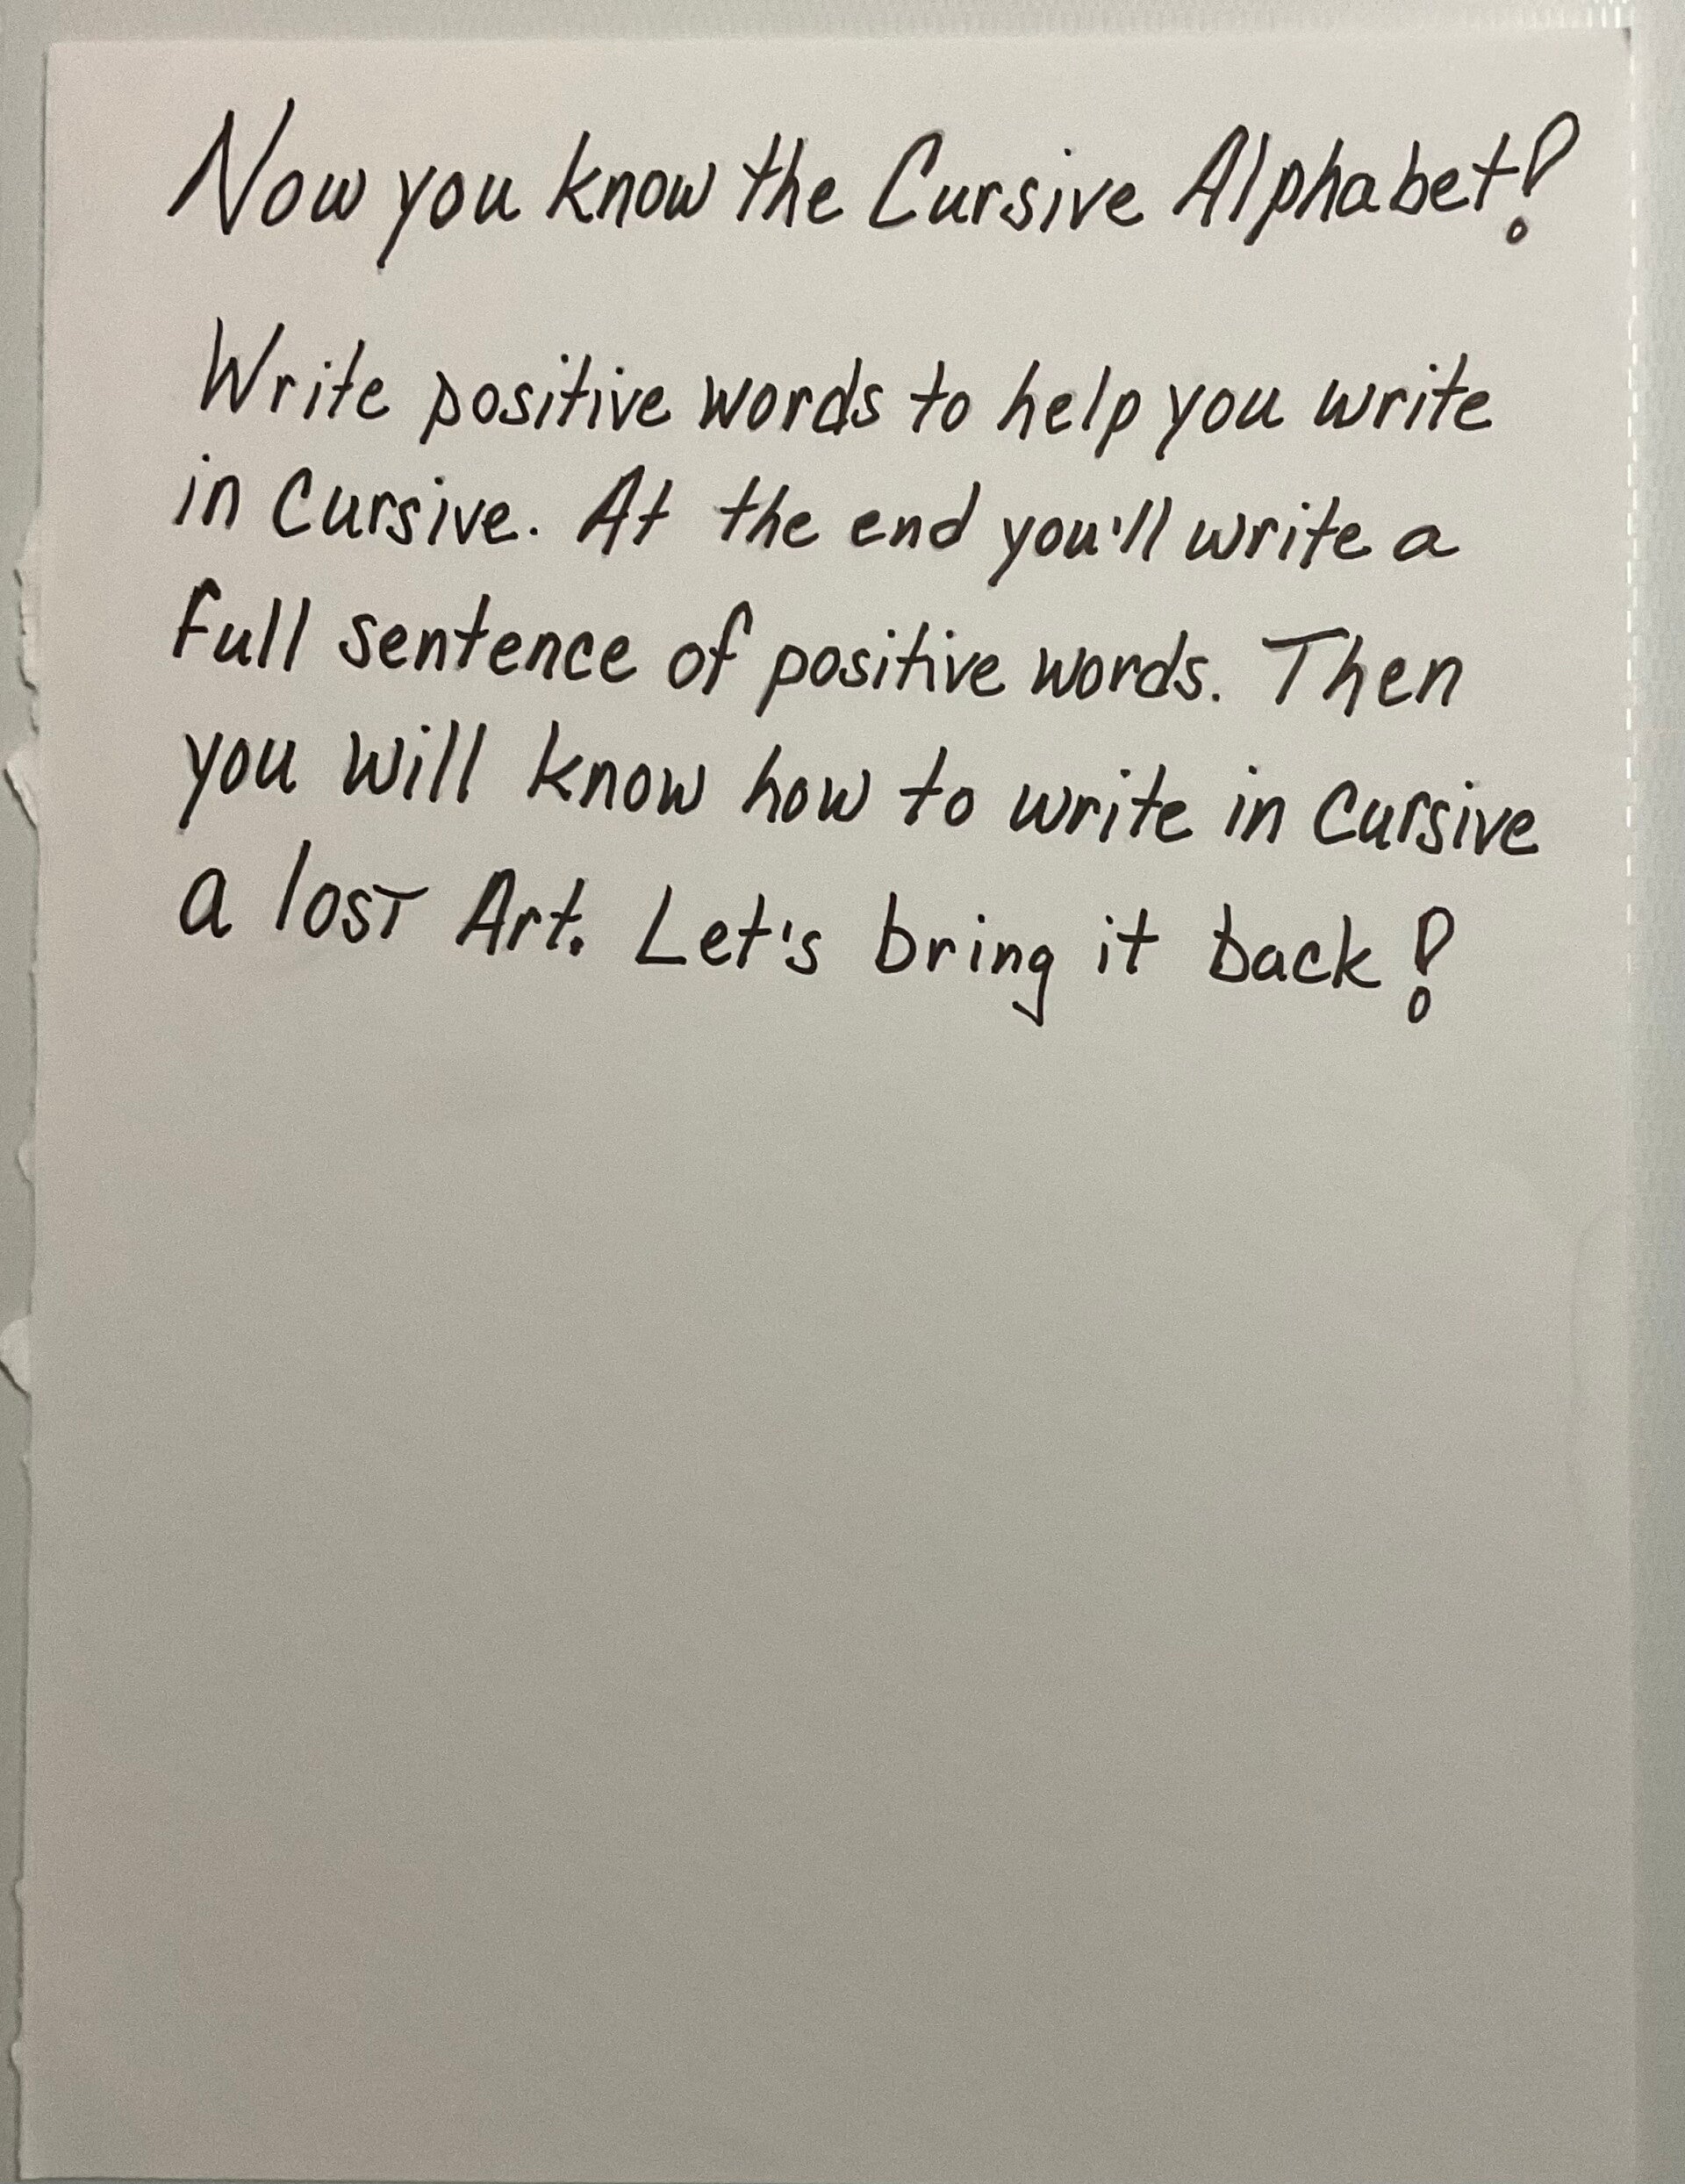 Now you know the Cursive Alphabet!
Write positive words to help you write
in Cursive. At the end you'll write a
full sentence of positive words. Then
you will know how to write in Cursive
a lost Art. Let's bring it back!